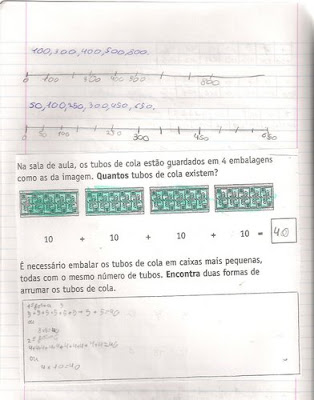 100,300,400,500,800.
0 100 300 400 500 800
50,100,250,300,450,650.
0 50 100 250 300 450 650
Na sala de aula, os tubos de cola estão guardados em 4 embalagens
como as da imagem. Quantos tubos de cola existem?
10 + 10 + 10 + 10 = 40
É necessário embalar os tubos de cola em caixas mais pequenas,
todas com o mesmo número de tubos. Encontra duas formas de
arrumar os tubos de cola.
ou
ou
4 x 10=40